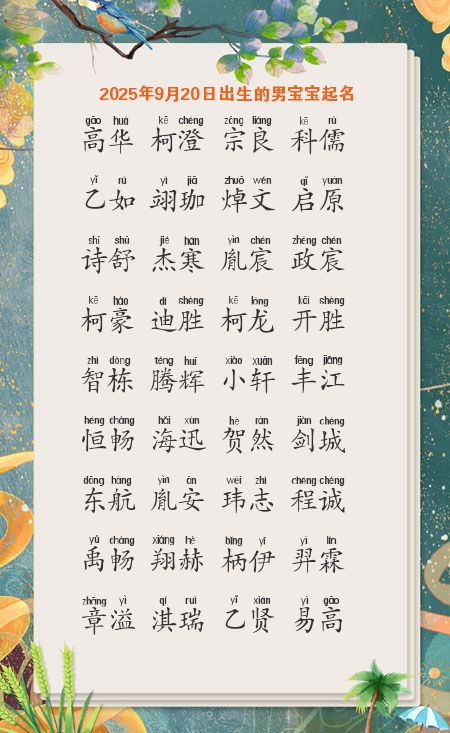 2025年9月20日出生的男宝宝起名
gāo huá kē chéng zōng liáng kē rú
高华 柯澄 宗良 科儒
yǐ rú yì jiā zhuō wén qǐ yuán
乙如 翊珈 焯文 启原
shī shū jié hán yìn chén zhèng chén
诗舒 杰寒 胤宸 政宸
kē háo dí shèng kē lóng kāi shèng
柯豪 迪胜 柯龙 开胜
zhì dòng téng huī xiǎo xuān fēng jiāng
智栋 腾辉 小轩 丰江
héng chàng hǎi xùn hè rán jiàn chéng
恒畅 海迅 贺然 剑城
dōng háng yìn ān wěi zhì chéng chéng
东航 胤安 玮志 程诚
yǔ chàng xiáng hè bǐng yī yì lín
禹畅 翔赫 柄伊 羿霖
zhāng yì qí ruì yǐ xián yì gāo
章溢 淇瑞 乙贤 易高